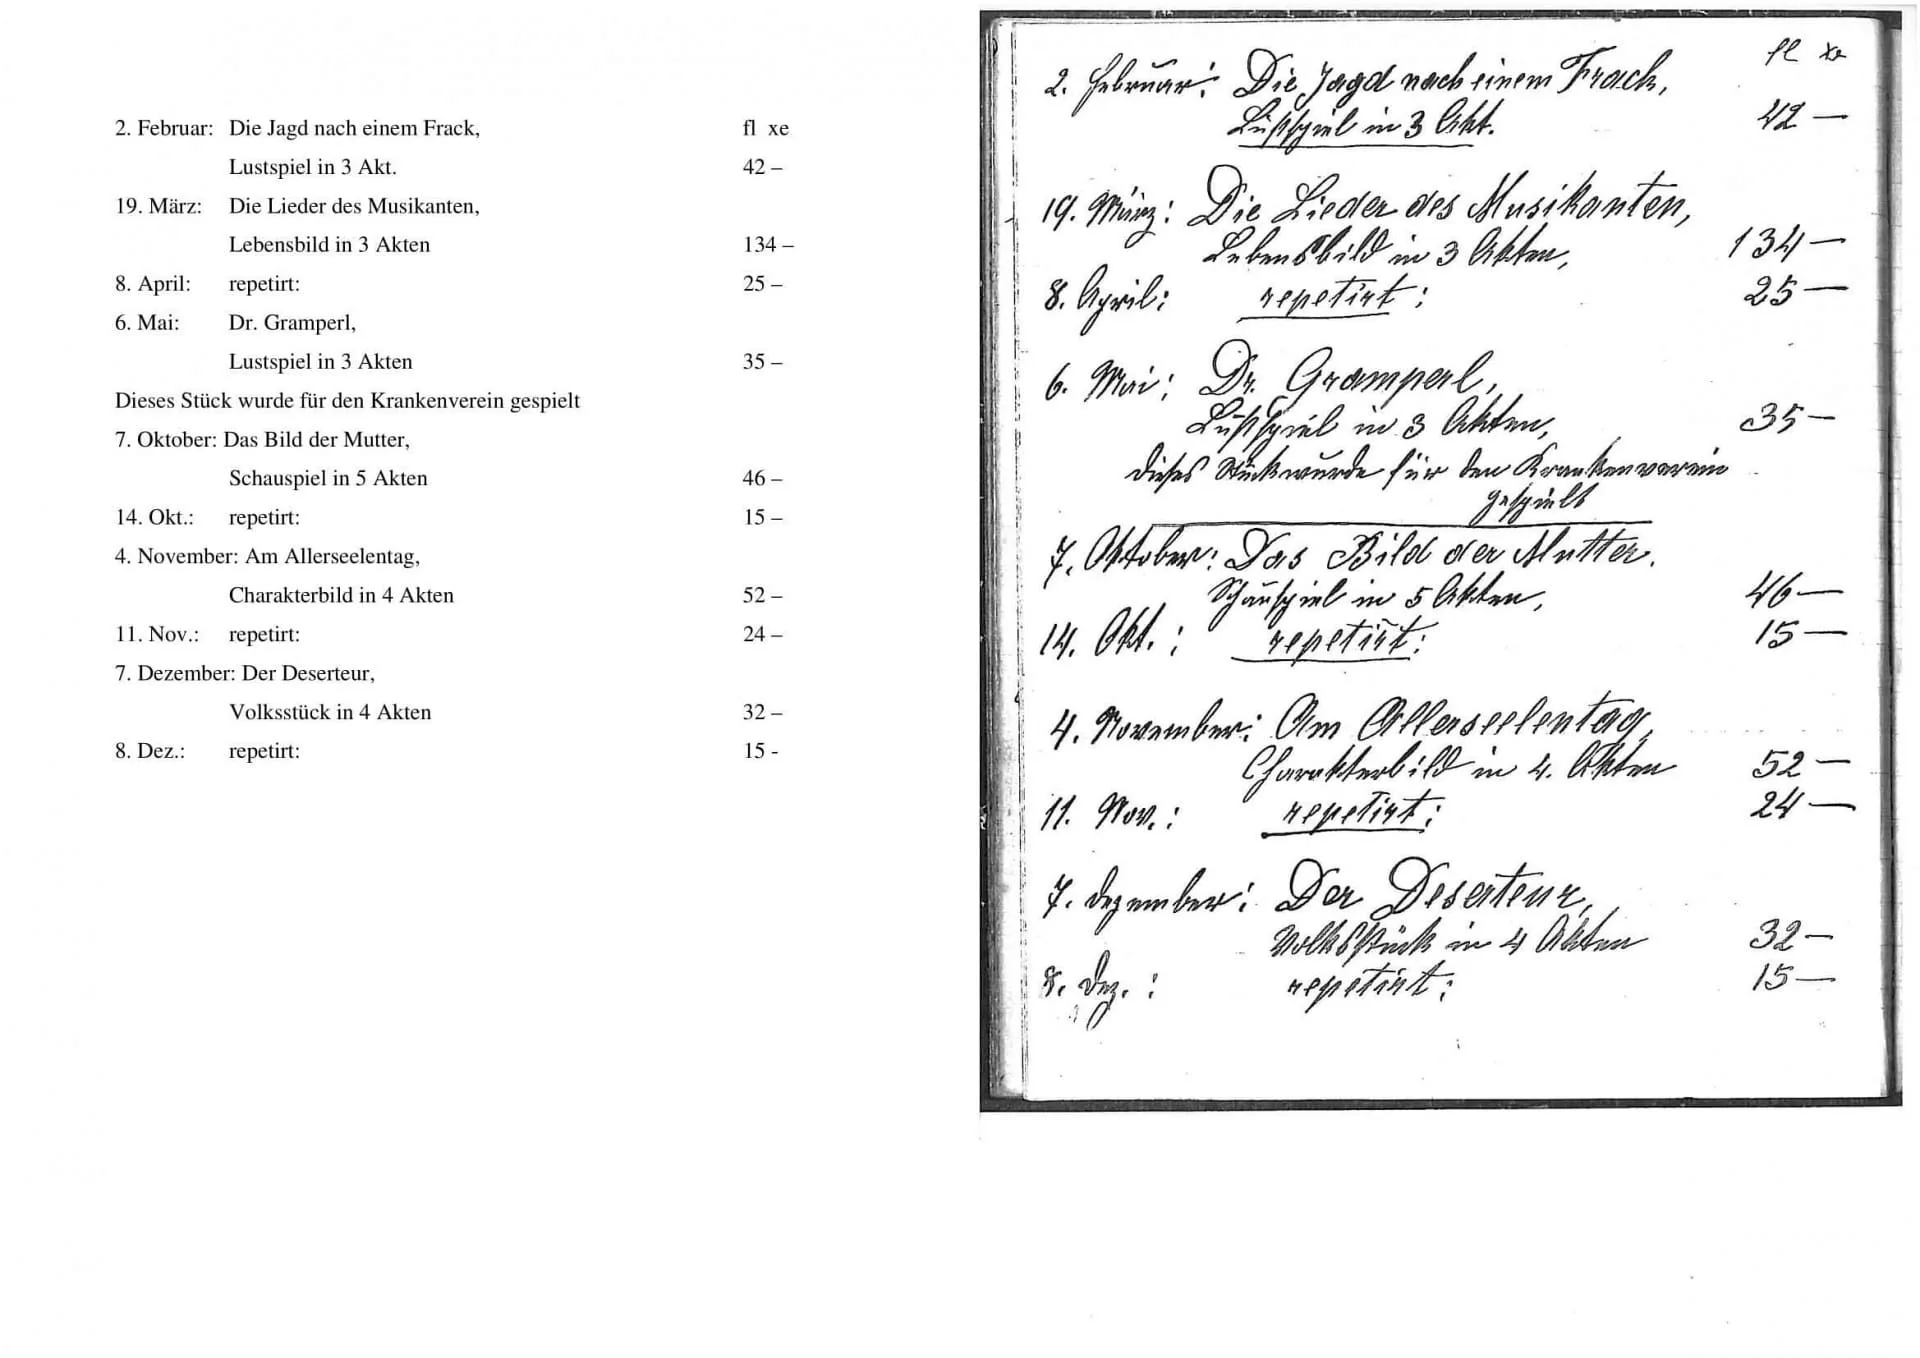 2. Februar: Die Jagd nach einem Frack, fl xe
Lustspiel in 3 Akt. 42 –
19. März: Die Lieder des Musikanten,
Lebensbild in 3 Akten 134 –
8. April: repetirt: 25 –
6. Mai: Dr. Gramperl,
Lustspiel in 3 Akten 35 –
Dieses Stück wurde für den Krankenverein gespielt
7. Oktober: Das Bild der Mutter,
Schauspiel in 5 Akten 46 –
14. Okt.: repetirt: 15 –
4. November: Am Allerseelentag,
Charakterbild in 4 Akten 52 –
11. Nov.: repetirt: 24 –
7. Dezember: Der Deserteur,
Volksstück in 4 Akten 32 –
8. Dez.: repetirt: 15 -
fl xe
2. Februar: Die Jagd nach einem Frack,
Lustspiel in 3 Akt. 42 —
19. März: Die Lieder des Musikanten,
Lebensbild in 3 Akten, 134 —
8. April: repetirt: 25 —
6. Mai: Dr. Gramperl,
Lustspiel in 3 Akten, 35 —
dieses Stück wurde für den Krankenverein
gespielt
7. Oktober: Das Bild der Mutter.
Schauspiel in 5 Akten, 46 —
14. Okt.: repetirt: 15 —
4. November: Am Allerseelentag,
Charakterbild in 4. Akten 52 —
11. Nov.: repetirt: 24 —
7. Dezember: Der Deserteur,
Volksstück in 4 Akten 32 —
8. Dez.: repetirt: 15 —